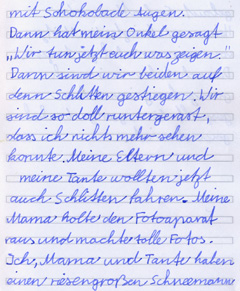 mit Schokolade Augen.
Dann hat mein Onkel gesagt
„Wir tun jetzt euch was zeigen."
Dann sind wir beiden auf
denn Schlitten gestiegen. Wir
sind so doll runtergerast,
dass ich nichts mehr sehen
konnte. Meine Eltern und
meine Tante wollten jetzt
auch Schlitten fahren. Meine
Mama holte den Fotoaparat
raus und machte tolle Fotos.
Ich, Mama und Tante haben
einen riesengroßen Schneemann